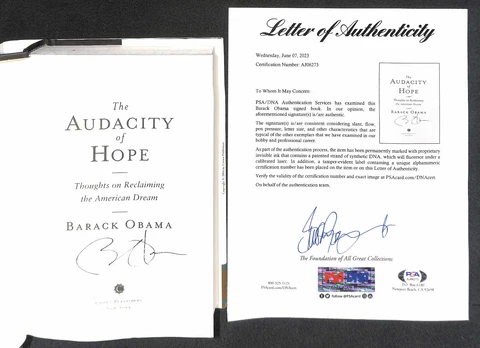 The
AUDACITY
of
HOPE
Thoughts on Reclaiming
the American Dream
BARACK OBAMA
CROWN PUBLISHERS
NEW YORK
Letter of Authenticity
Wednesday, June 07, 2023
Certification Number: AJ06273
To Whom It May Concern:
PSA/DNA Authentication Services has examined this
Barack Obama signed book. In our opinion, the
aforementioned signature(s) is/are authentic.
The signature(s) is/are consistent considering slant, flow,
pen pressure, letter size, and other characteristics that are
typical of the other exemplars that we have examined in our
hobby and professional career.
As part of the authentication process, the item has been permanently marked with proprietary
invisible ink that contains a patented strand of synthetic DNA, which will fluoresce under a
calibrated laser. In addition, a tamper-evident label containing a unique alphanumeric
certification number has been placed on the item or on this Letter of Authenticity.
Verify the validity of the certification number and exact image at PSAcard.com/DNAcert.
On behalf of the authentication team,
The
AUDACITY
of
HOPE
Thoughts on Reclaiming
the American Dream
BARACK OBAMA
The Foundation of All Great Collections
PSAcard.com/DNAcert
Follow @PSAcard
PSA
Newport Beach, CA